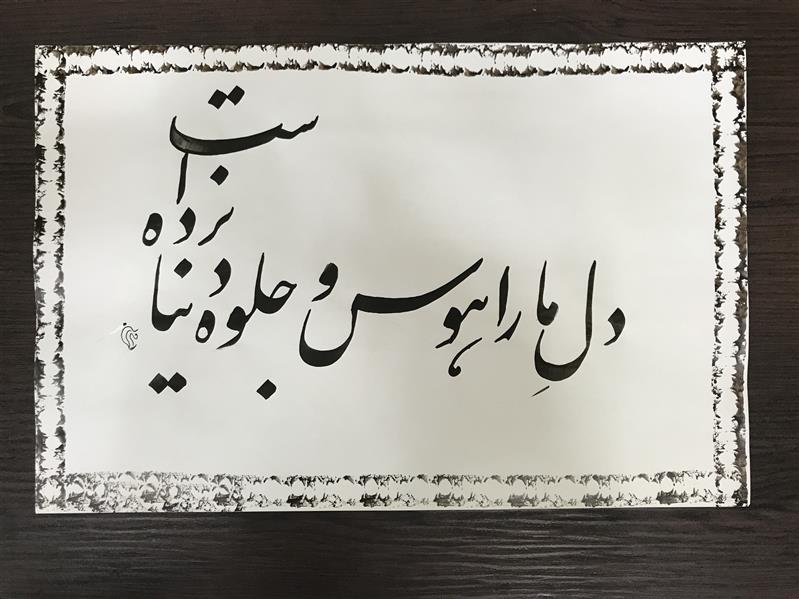 دلِ ما را هوس و جلوه دنیا نزده است